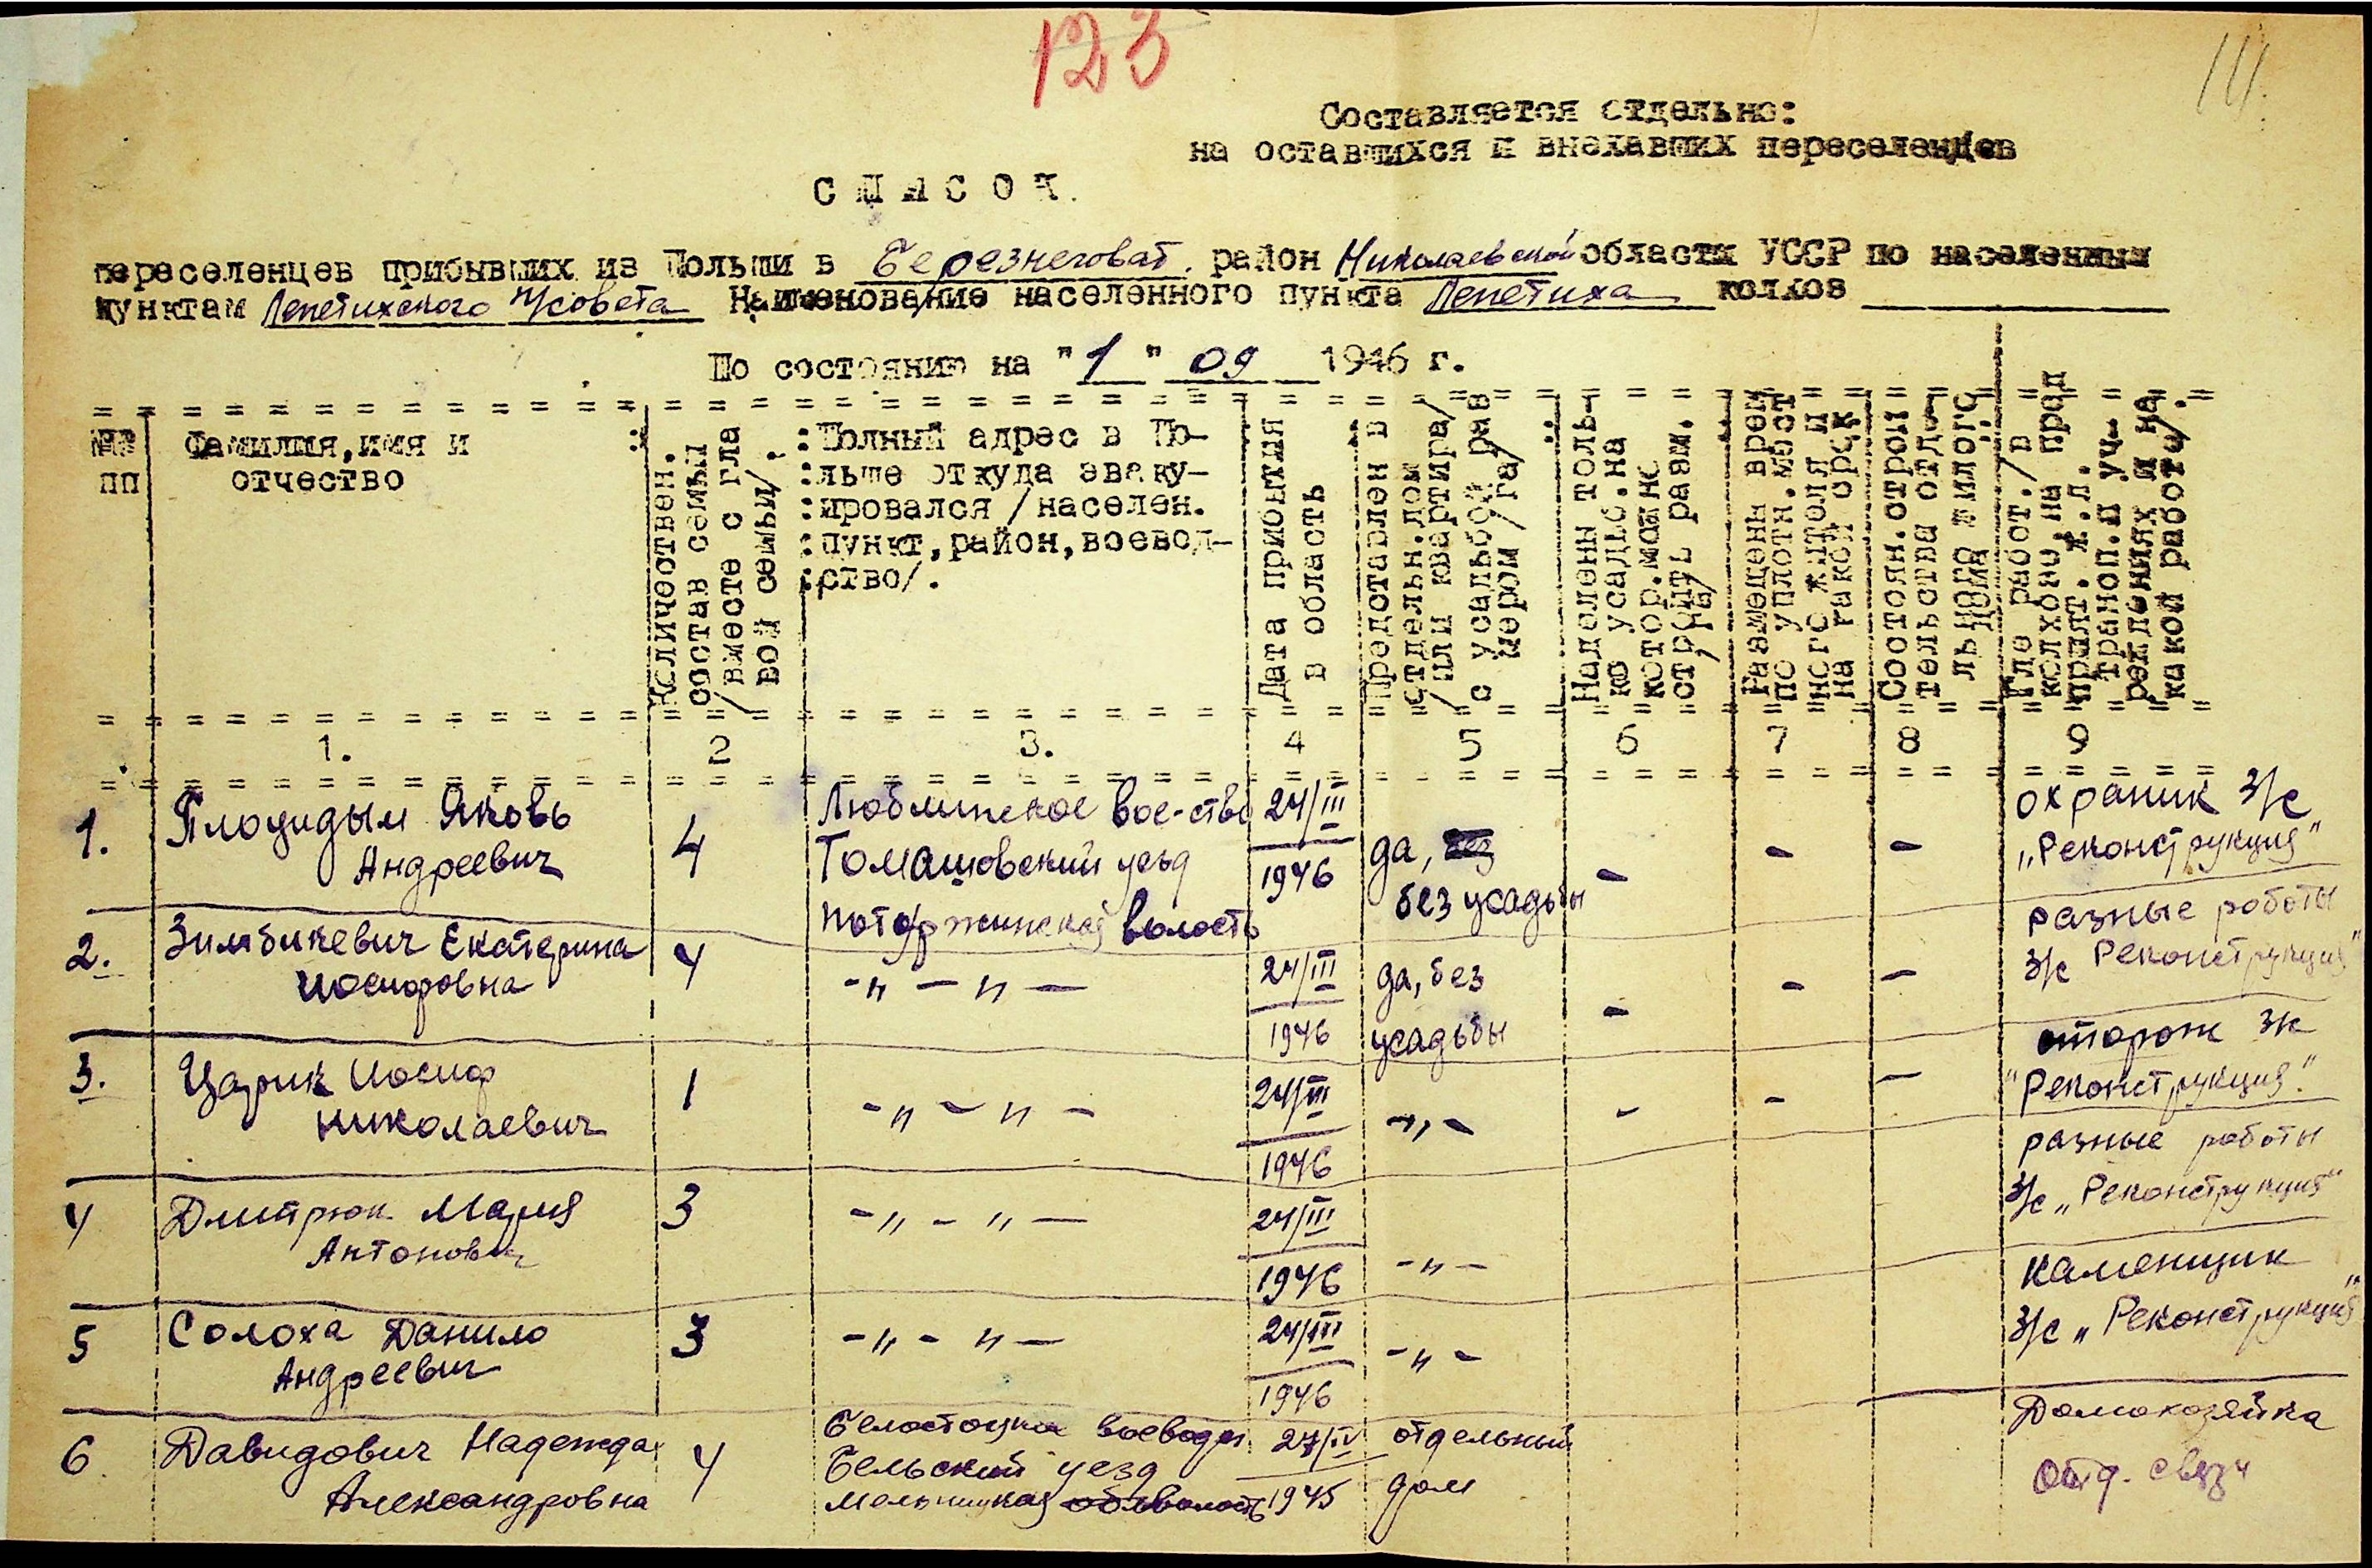 123
111.
Составляется отдельно:
на оставшихся и внехавших переселенцев
С П И С О К.
переселенцев прибывших из Польши в Березнеговат. район Николаевской области УССР по населенным
пунктам Лепетихского с/совета Наименование населенного пункта Лепетиха колхов
По состоянию на "1" 09 1946 г.
№№
пп
Фамилия, имя и
отчество
Количествен.
состав семьи
/вместе с гла
вой семьи/.
Полный адрес в По-
льше откуда эваку-
ировался /населен.
пункт, район, воевод-
ство/.
Дата прибытия
в область
Представлен в
отдельн.дом
/или квартира/
с усадьбой рав
мером /га/
Наделены толь-
ко усадьб. на
котор.можно
строить разм.
/га/
Размещены врем
по уплотн.мест
ного жителя и
на какой срок
Состоян.строи
тельства отде-
льного жилого
дома
Где работ./в
колхозе, на пред
прият. ж.д.
трансп.и уч-
реждениях и на
какой работе/.
1. 2 3. 4 5 6 7 8 9
1. Плоцидым Яковь
Андреевич
4
Люблинское вое-ство
Томашовский уезд
Поторжинская волость
24/III
1946
да, без
без усадьбы
- - -
охраник З/с
„Реконструкция"
2. Зимбикевич Екатерина
Иосифовна
4
-"- "-
24/III
1946
да, без
усадьбы
- - -
разные работы
З/с Реконструкция"
3. Царик Иосиф
Николаевич
1
-"- "-
24/III
1946
-"-
- - -
сторож З/с
"Реконструкция".
4 Дмитрюк Мария
Антоновн
3
-"- "-
24/III
1946
-"-
разные работы
З/с „Реконструкция"
5 Солоха Данило
Андреевич
3
-"- "-
24/III
1946
-"-
каменщик
З/с „Реконструкция"
6. Давидович Надежда
Александровна
4
Белостоцка воевод
Бельский уезд
Мельницкая волость
27/IV
1945
отдельный
дом
Домохозяйка
Отд. связи